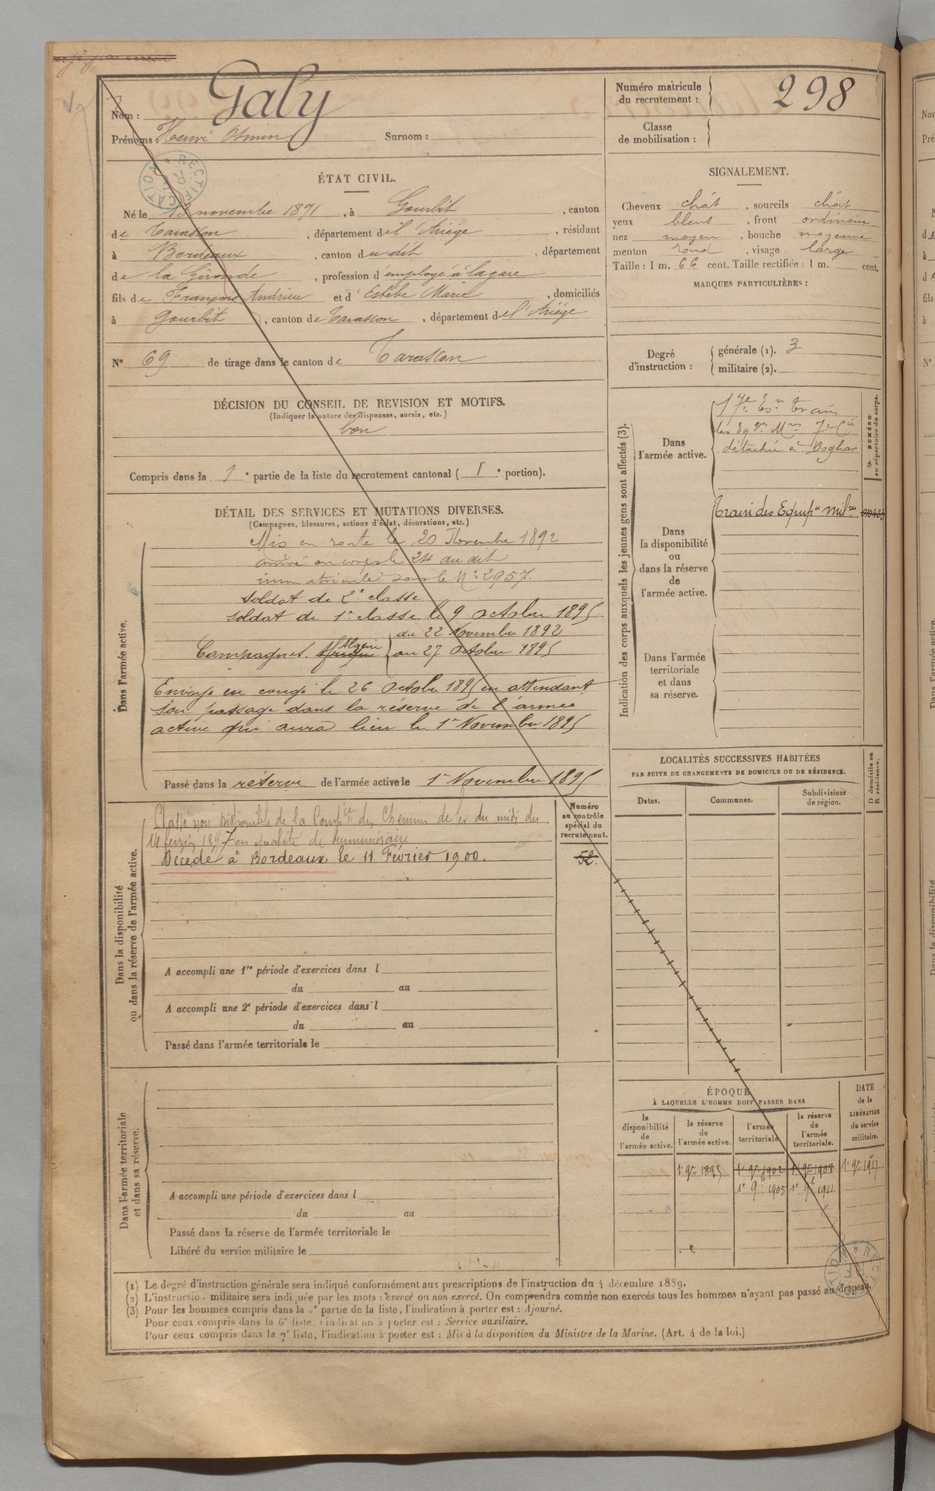 Nom : Galy
Prénoms : Henri
Surnom :
Numéro matricule
du recrutement : 298
Classe
de mobilisation :
ÉTAT CIVIL.
Né le 13 novembre 1871, à Gourbit, canton
de Tarascon, département de l'Ariège, résidant
à Bordeaux, canton dudit, département
de la Gironde, profession d'employé à la gare
fils de François Andrieu et d'Estèbe Marie, domiciliés
à Gourbit, canton de Tarascon, département de l'Ariège
N° 69 de tirage dans le canton de Tarascon
SIGNALEMENT.
Cheveux chât, sourcils chât
yeux bleus, front ordinaire
nez moyen, bouche moyenne
menton rond, visage large
Taille : 1 m. 66 cent. Taille rectifiée : 1 m. cent.
MARQUES PARTICULIÈRES :
Degré
d'instruction :
générale (1). 3
militaire (2).
DÉCISION DU CONSEIL DE REVISION ET MOTIFS.
(Indiquer la nature des dispenses, sursis, etc.)
bon
Compris dans la 1e partie de la liste du recrutement cantonal ( 1e portion).
DÉTAIL DES SERVICES ET MUTATIONS DIVERSES.
(Campagnes, blessures, actions d'éclat, décorations, etc.)
Dans l'armée active.
Mis en route le 20 Novembre 1892
arrivé au corps le 24 du dit
immatriculé sous le N° 2957.
Soldat de 2e classe
Soldat de 1e classe le 9 octobre 1895
du 22 Novembre 1892
Campagnes. Algérie au 27 Octobre 1895
Envoyé en congé le 26 octobre 1895 en attendant
son passage dans la réserve de l'armée
active qui aura lieu le 1er Novembre 1895
Passé dans la réserve de l'armée active le 1er Novembre 1895
Indication des corps auxquels les jeunes gens sont affectés (3).
NUMÉRO
au répertoire du corps.
Dans
l'armée active.
17e Esn Train
des Eqges Mres 7e Cie
détachée à Boghar
Dans
la disponibilité
ou
dans la réserve
de
l'armée active.
Train des Equipes milres
Dans l'armée
territoriale
et dans
sa réserve.
Dans la disponibilité
ou dans la réserve de l'armée active.
Numéro
au contrôle
spécial du
recrutement.
52
Classé non disponible de la Compie des Chemins de fer du midi du
14 février 1897 en qualité de surnuméraire
Décédé à Bordeaux le 11 Février 1900.
A accompli une 1re période d'exercices dans l
du au
A accompli une 2e période d'exercices dans l
du au
Passé dans l'armée territoriale le
LOCALITÉS SUCCESSIVES HABITÉES
PAR SUITE DE CHANGEMENTS DE DOMICILE OU DE RÉSIDENCE.
Dates.
Communes.
Subdivisions
de région.
D domicile ou
R résidence.
Dans l'armée territoriale
et dans sa réserve.
A accompli une période d'exercices dans l
du au
Passé dans la réserve de l'armée territoriale le
Libéré du service militaire le
ÉPOQUE
À LAQUELLE L'HOMME DOIT PASSER DANS
la
disponibilité
de
l'armée active.
la réserve
de
l'armée active.
l'armée
territoriale.
la réserve
de
l'armée
territoriale.
DATE
de la
LIBÉRATION
du service
militaire.
1er 9bre 1895
1er 9bre 1902
1er 9bre 1908
1er 9bre 1917
1er 9bre 1905
1er 9bre 1911
(1) Le degré d'instruction générale sera indiqué conformément aux prescriptions de l'instruction du 4 décembre 1889.
(2) L'instruction militaire sera indiquée par les mots : exercé ou non exercé. On comprendra comme non exercés tous les hommes n'ayant pas passé au drapeau.
(3) Pour les hommes compris dans la 4e partie de la liste, l'indication à porter est : Ajourné.
Pour ceux compris dans la 6e liste, l'indication à porter est : Service auxiliaire.
Pour ceux compris dans la 7e liste, l'indication à porter est : Mis à la disposition du Ministre de la Marine. (Art. 4 de la loi.)